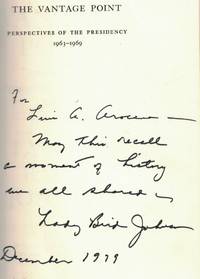 THE VANTAGE POINT
PERSPECTIVES OF THE PRESIDENCY
1963-1969
For
A.
May this recall
a moment of history
we all shared —
Lady Bird Johnson
December 1979